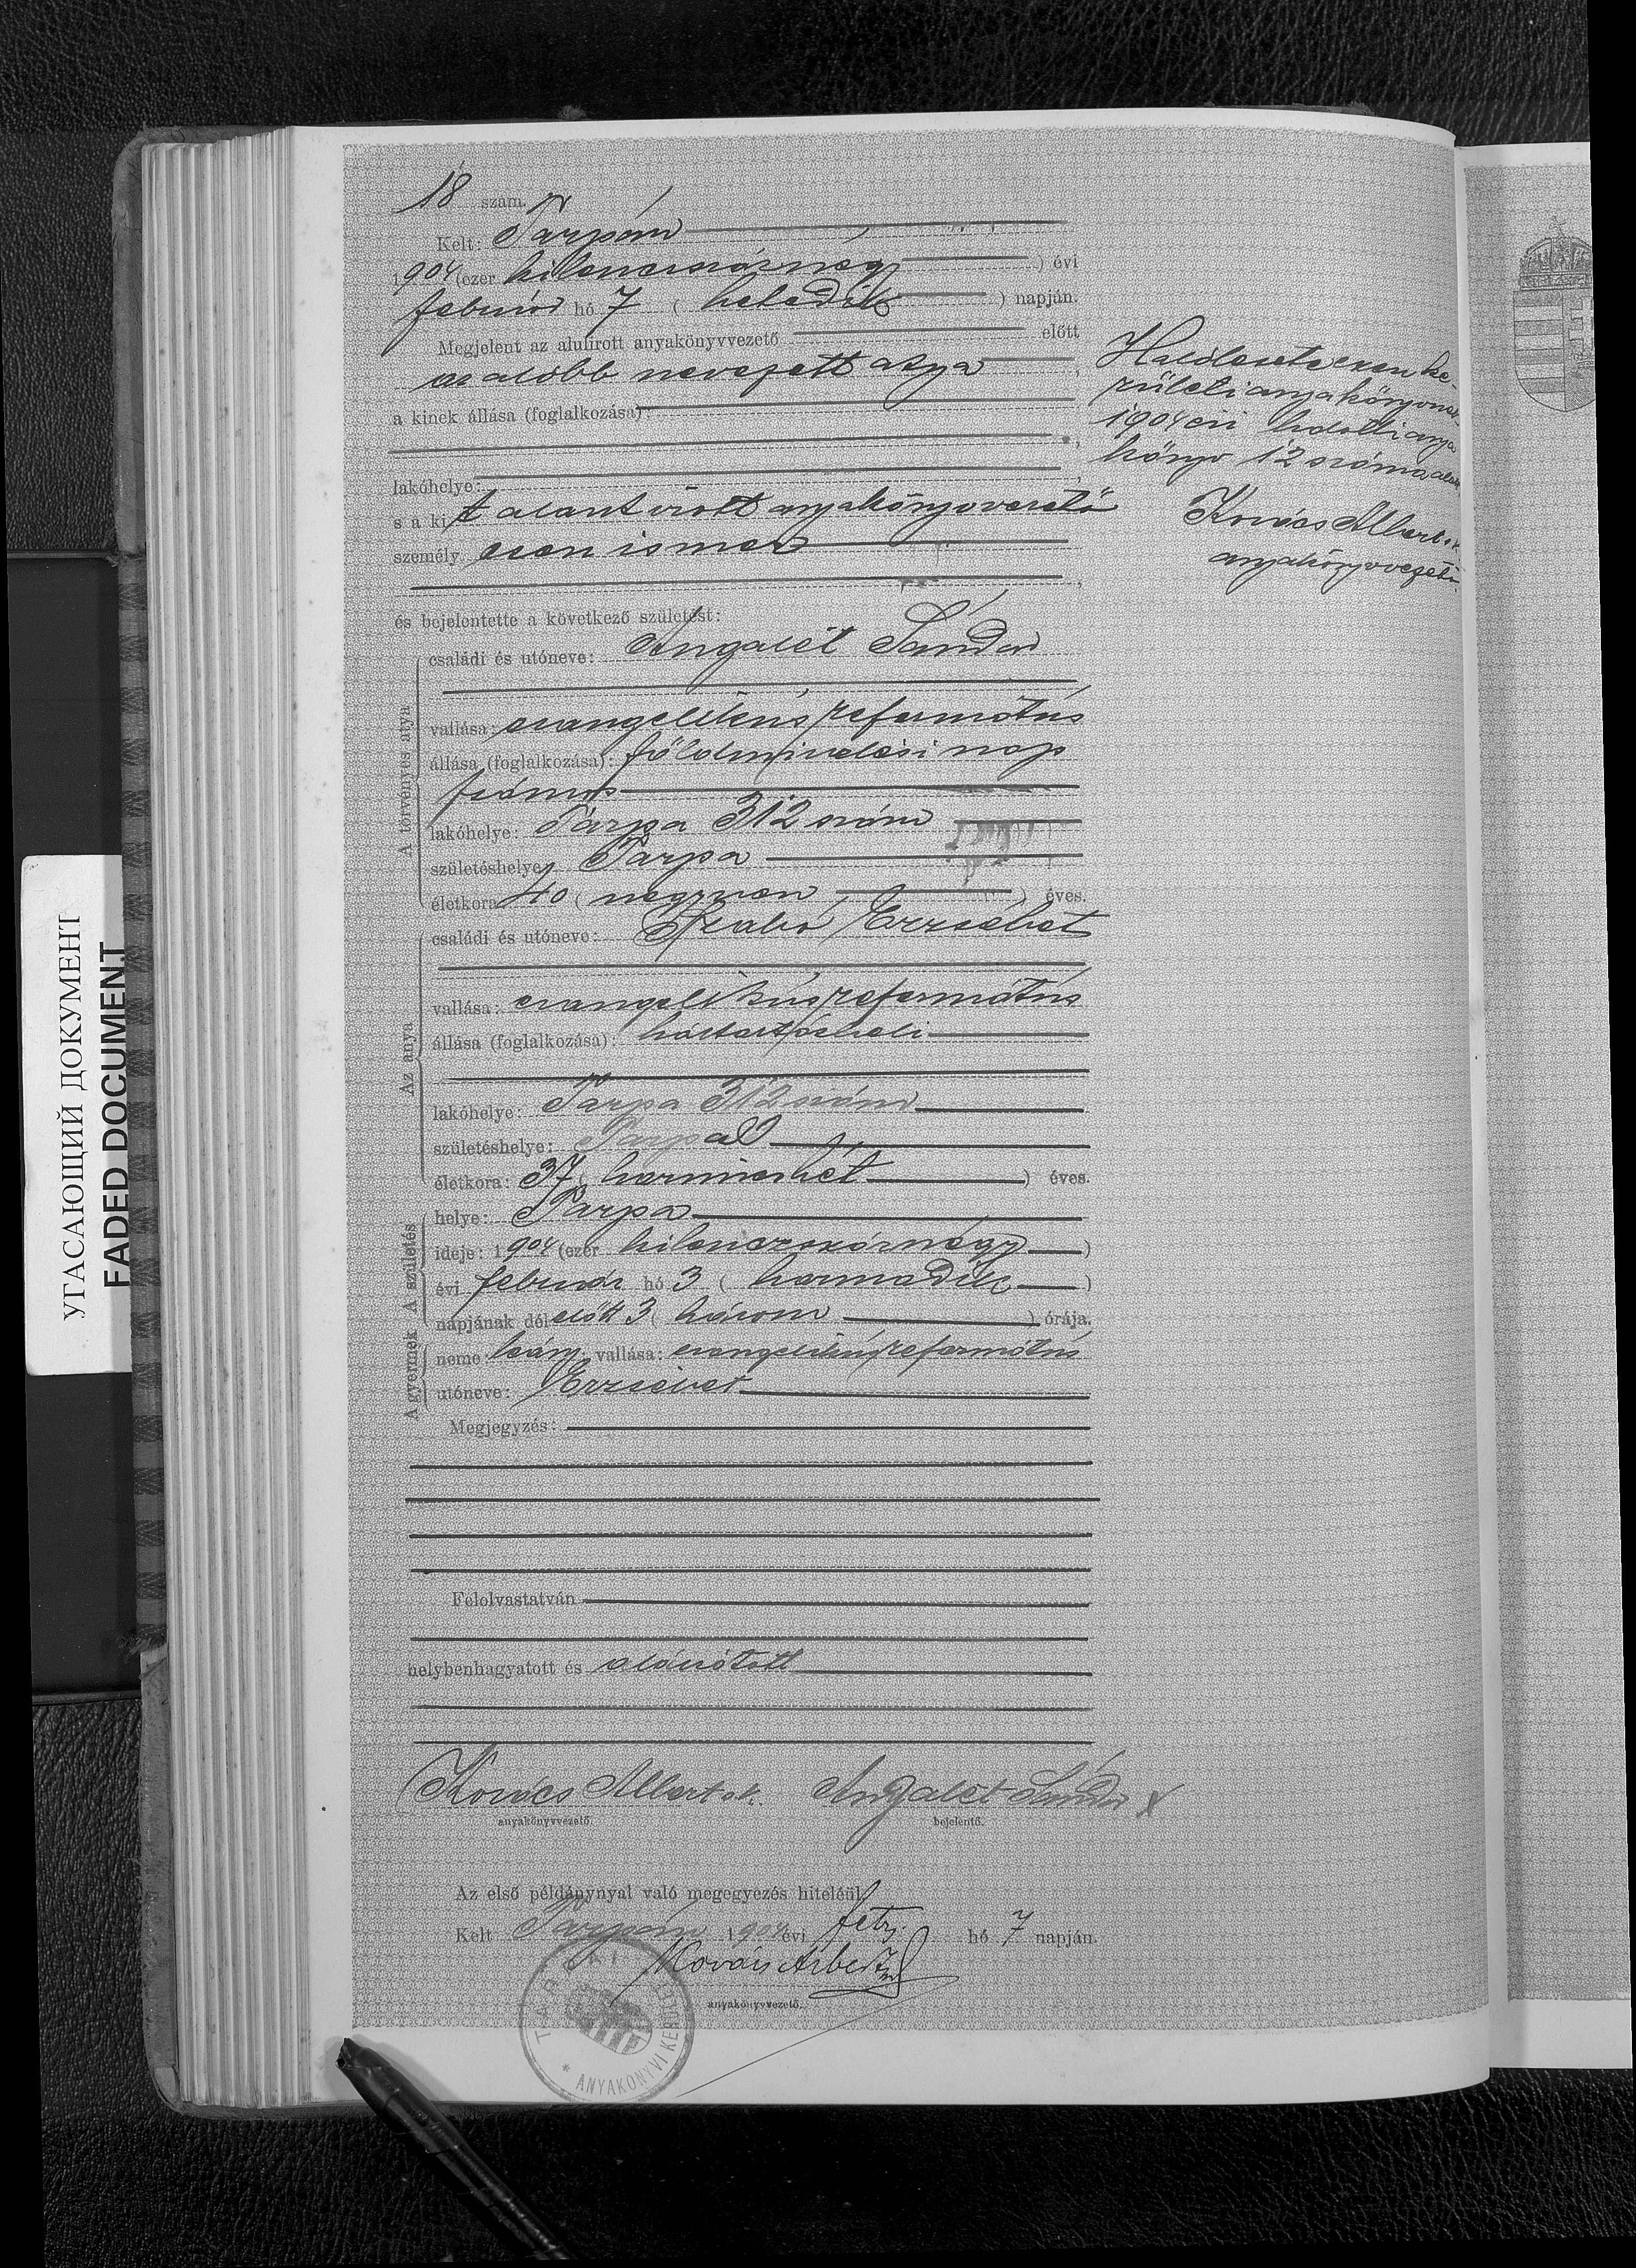 18 szám.
Kelt: Tarpán
1904 (ezer kilenczszáznégy) évi
február hó 7 (hetedik) napján.
Megjelent az alulírott anyakönyvvezető előtt
az alább nevezett atya,
a kinek állása (foglalkozása):
lakóhelye:
s a kit alant írott anyakönyvvezető
személyesen ismer
és bejelentette a következő születést:
A törvényes atya
családi és utóneve: Angalét Sándor
vallása: evangelikus református
állása (foglalkozása): földmivelési nap
számos
lakóhelye: Tarpa 312 szám
születéshelye: Tarpa
életkora: 40 (negyven) éves.
Az anya
családi és utóneve: Szabó Erzsébet
vallása: evangelikus református
állása (foglalkozása): háztartásbeli
lakóhelye: Tarpa 312 szám
születéshelye: Tarpa
életkora: 37 (harminczhét) éves.
A születés
helye: Tarpa
ideje: 1904 (ezer kilenczszáznégy)
évi február hó 3 (harmadik)
napjának délelőtt 3 (három) órája.
A gyermek
neme: leány; vallása: evangelikus református
utóneve: Erzsébet
Megjegyzés:
Felolvastatván
helybenhagyatott és aláíratott
Kovács Albert sk. Angalét Sándor
anyakönyvvezető. bejelentő.
Az első példánynyal való megegyezés hiteléül.
Kelt Tarpán 1904 évi febr. hó 7 napján.
Kovács Albert
anyakönyvvezető.
TARPAI
ANYAKÖNYVI KERÜLETI
Halálesete ezen ke-
rületi anyakönyvnek
1904 évi halotti anya
könyv 12 száma alatt
Kovács Albert sk.
anyakönyvvezető
УГАСАЮЩИЙ ДОКУМЕНТ
FADED DOCUMENT